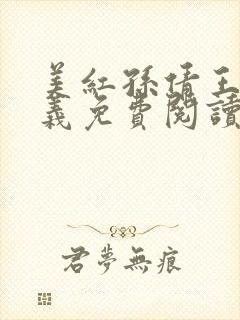 美紅孫倩王
義免費閱讀
君夢無痕